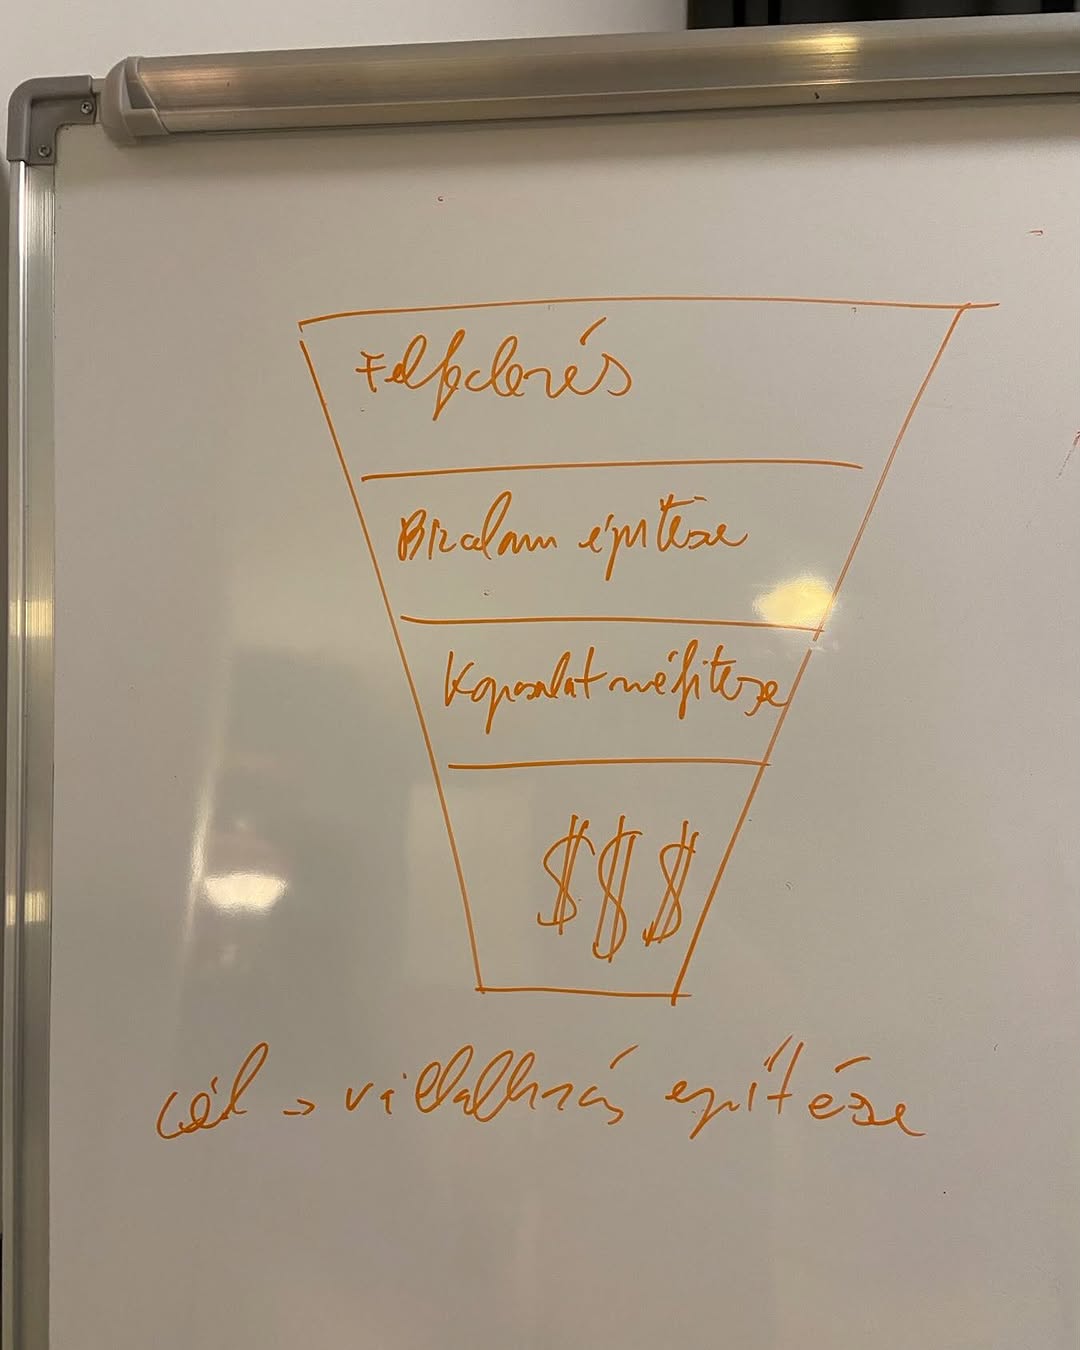 Felfedezés
Bizalom építése
Kapcsolat mélyítése
$$$
Cél → vállalkozás építése